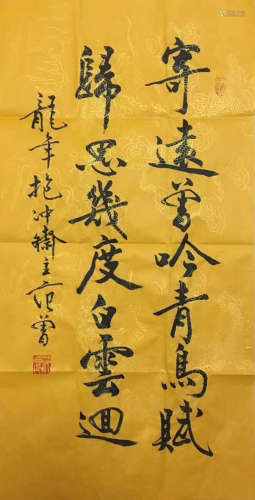 寄遠曾吟青鳥賦
歸思幾度白雲迴
龍年抱冲齋主范曾